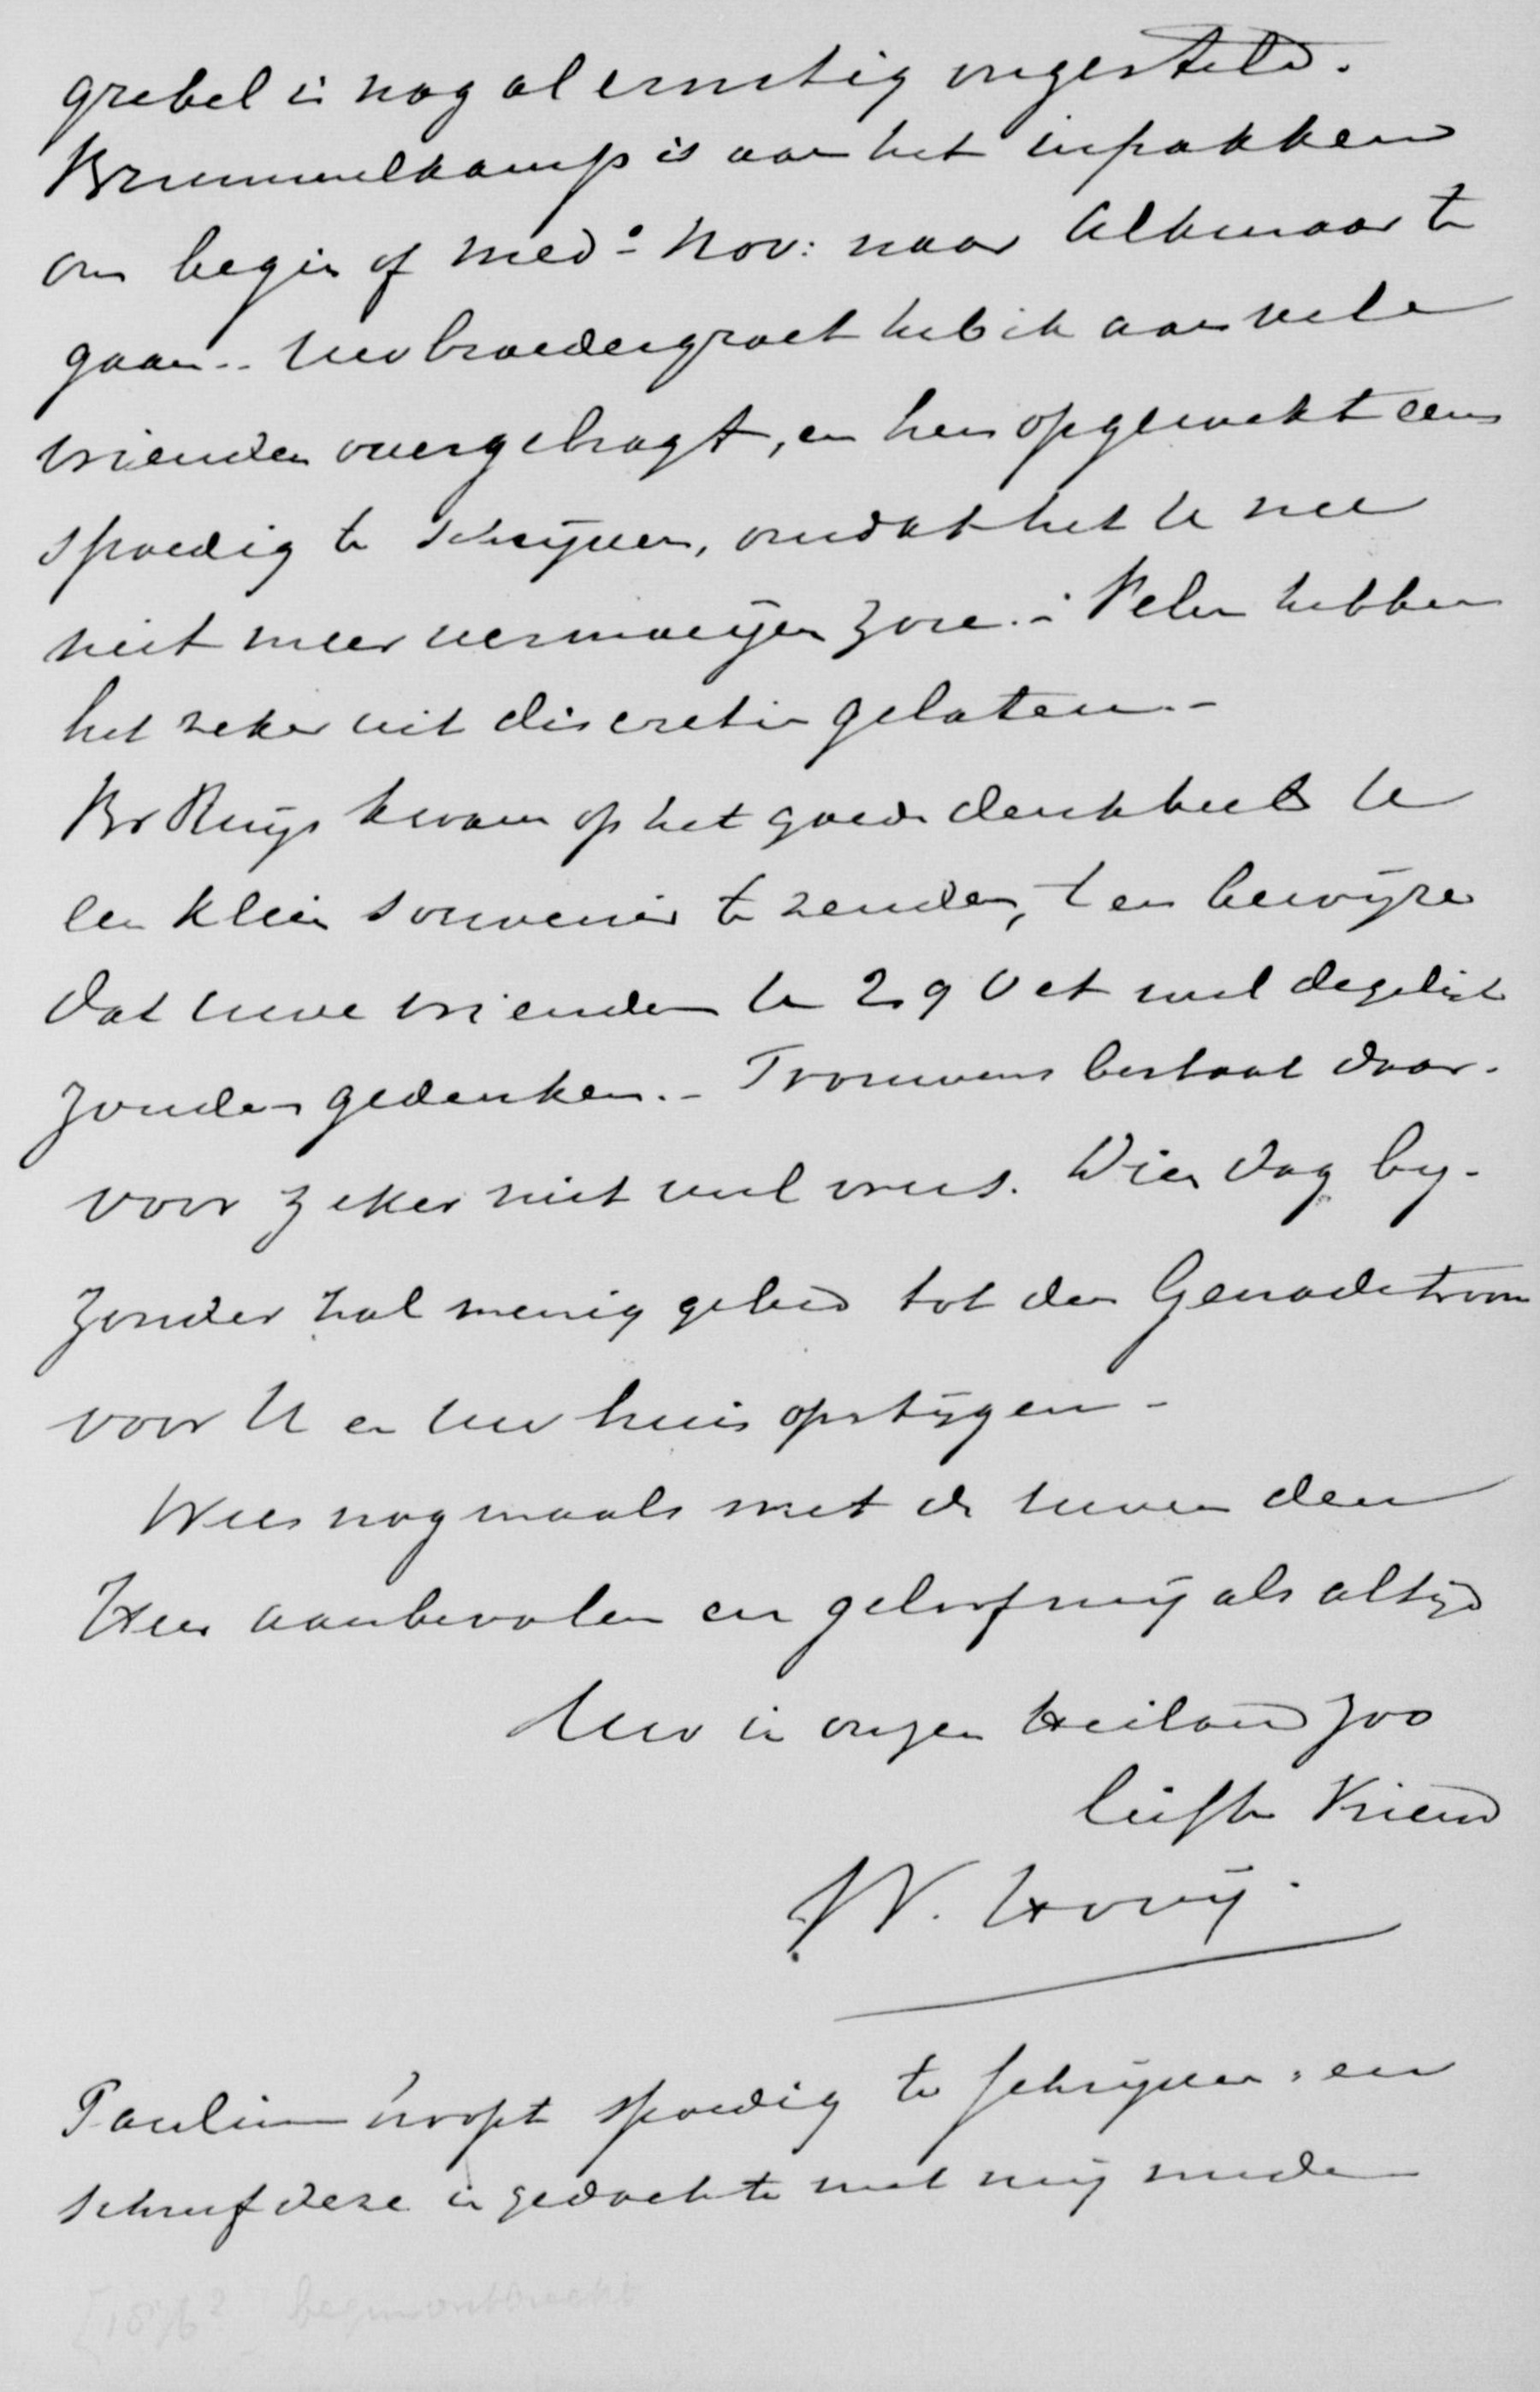 grebel is nog al ernstig ongesteld.
Brummelkamp is aan het inpakken
om begin of med° Nov: naar Alkmaar te
gaan.. Uw broedergroet heb ik aan vele
vrienden overgebragt, en hen opgewekt eens
spoedig te schrijven, omdat het U nu
niet meer vermoeijen zou.- Velen hebben
het zeker uit discretie gelaten.-
Br Ruijs kwam op het goede denkbeeld U
een klein souvenir te zenden, ten bewijze
dat uwe vrienden U 29 Oct wel degelijk
zouden gedenken.- Trouwens bestaat daar-
voor zeker niet veel vrees. Dien dag by-
zonder zal menig gebed tot den Genadetroon
voor U en Uw huis opstijgen -
Wees nogmaals met de uwen den
Heer aanbevolen en geloof mij als altijd
Uw in onzen Heiland zoo
liefh Vriend
W. Hovij.
Pauline hoopt spoedig te schrijven, en
schreef deze in gedachte met mij mede
[1876? begin ontbreekt